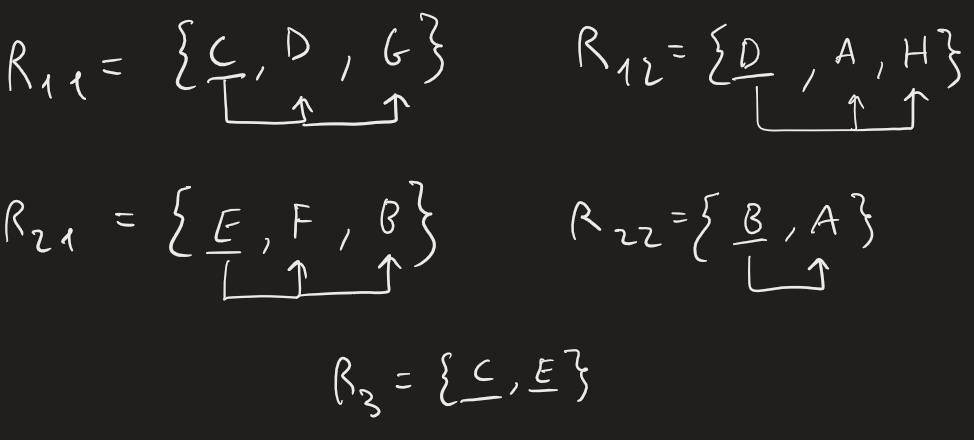 R₁₁ = {C, D, G}
R₁₂ = {D, A, H}
R₂₁ = {E, F, B}
R₂₂ = {B, A}
R₃ = {C, E}